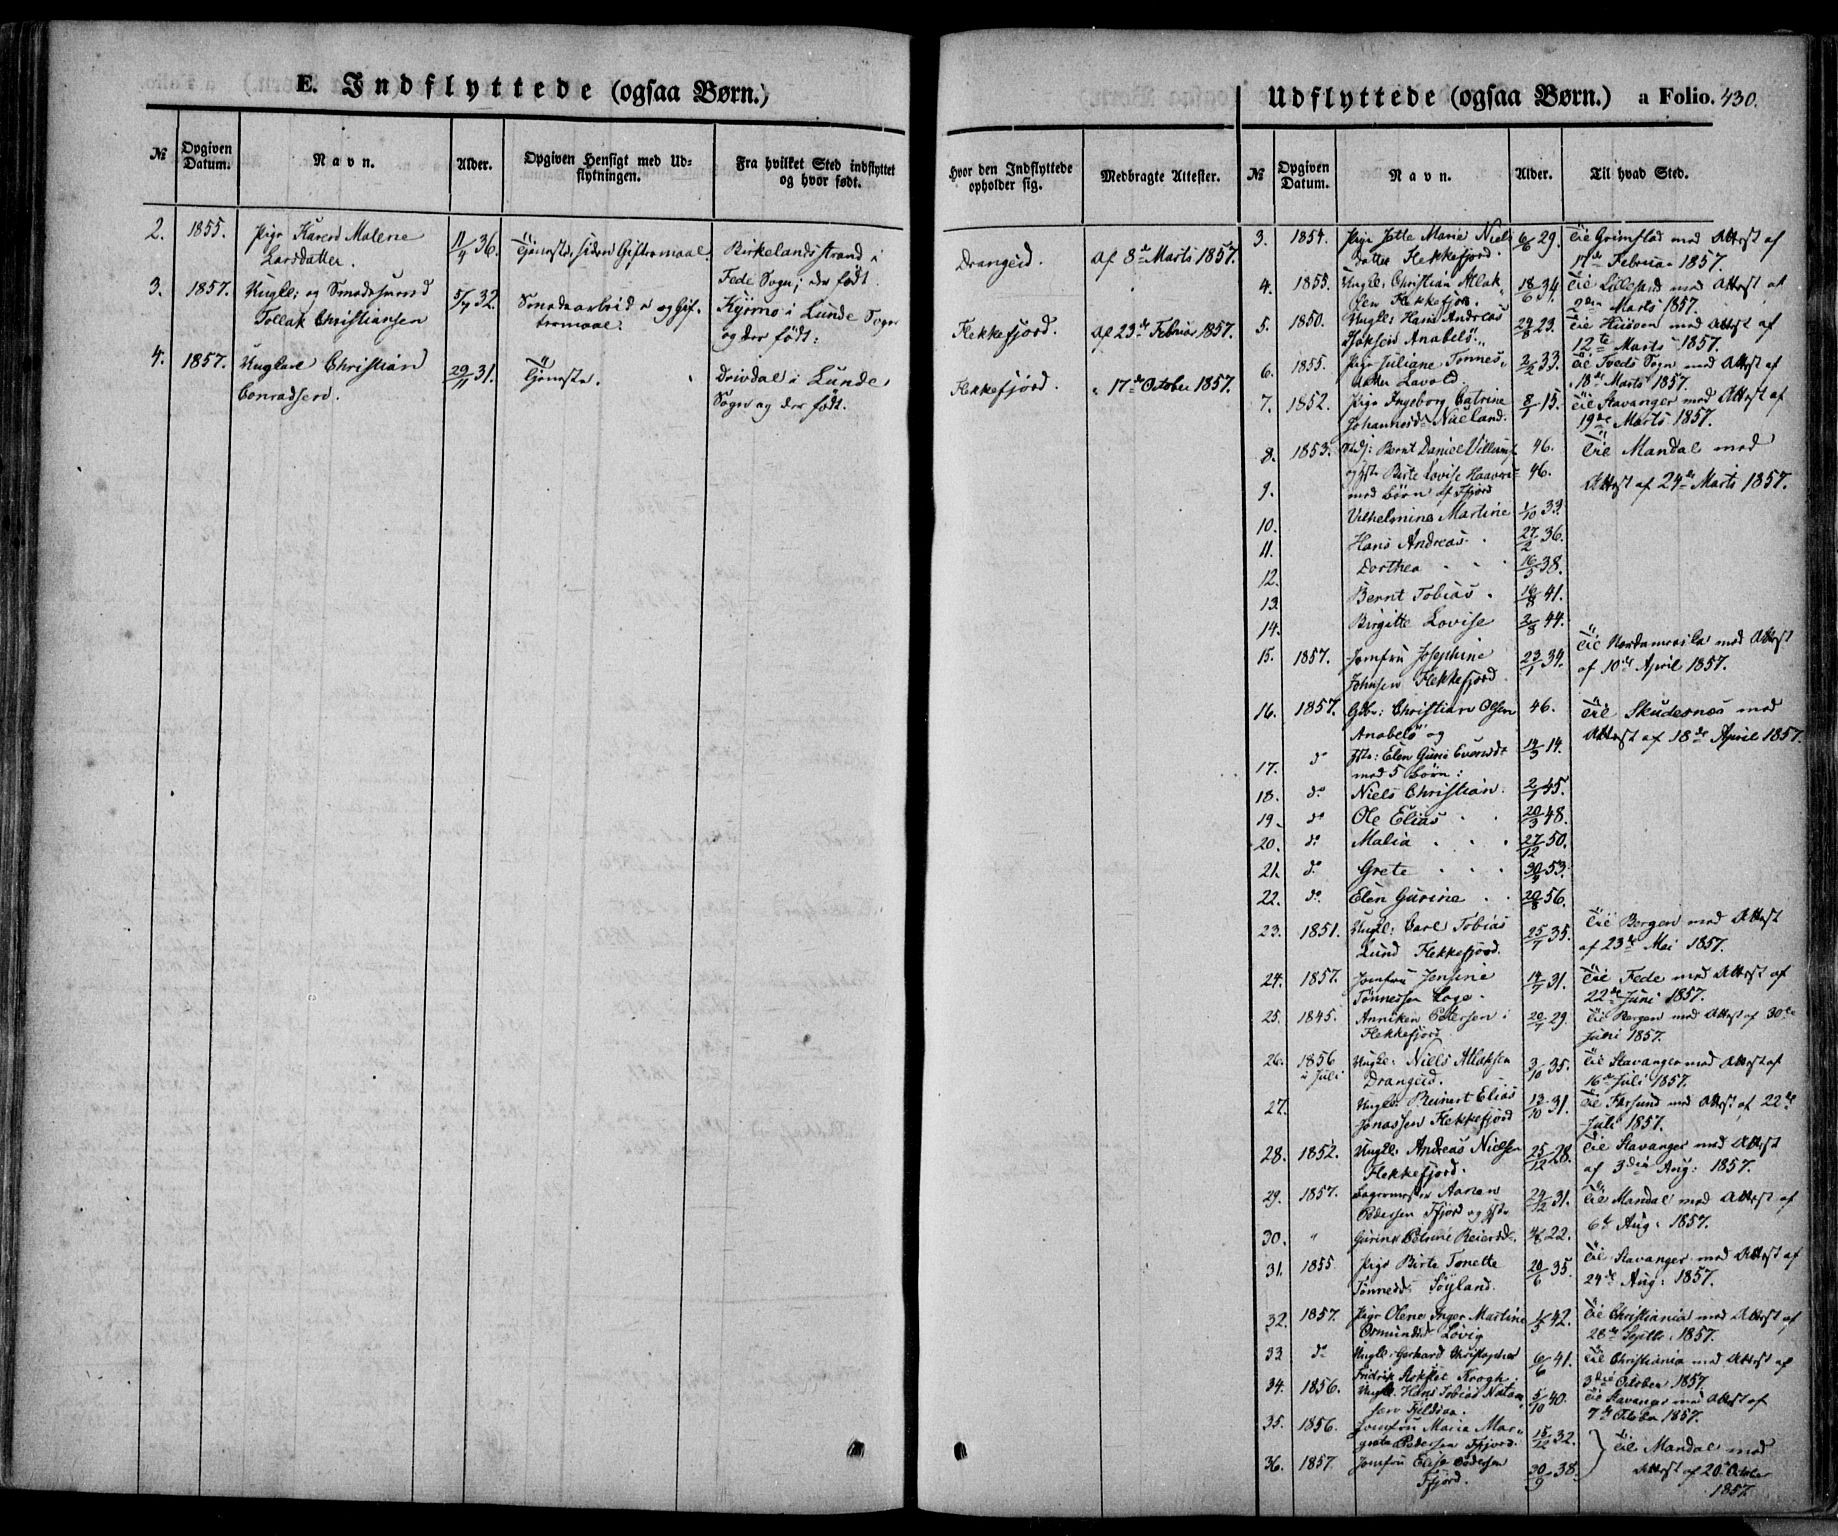 E. Indflyttede (ogsaa Børn.)
№ Opgiven Datum. Navn. Alder. Opgiven Hensigt med Udflytningen. Fra hvilket Sted indflyttet og hvor født.
2. 1855. Pige Karen Malene 11/4 36. Tjeneste, siden Giftermaal. Birkelandsstrand i
Larsdatter. Fede Sogn; der født.
3. 1857. Ungk: og Smedesvend 5/7 32. Smedearbeide og Gif- Kjyrmo i Lunde Sogn
Tollak Christiansen termaal. og der født.
4. 1857. Ungkarl Christian 29/11 31. Tjeneste. Drivdal i Lunde
Conradsen. Sogn og der født.
Hvor den Indflyttede opholder sig. Medbragte Attester.
Drangeid. Af 8de Marts 1857.
Flekkefjord. Af 23de Februar 1857.
Flekkefjord. " 17de October 1857.
Udflyttede (ogsaa Børn.) a Folio. 430.
№ Opgiven Datum. Navn. Alder. Til hvad Sted.
3. 1854. Pige Jette Marie Niels 6/6 29. Til Grimstad med Attest af
datter Flekkefjord. 17de Februar 1857.
4. 1855. Ungk: Christian Atlak 18/6 34. Til Lillesand med Attest af
Olsen Flekkefjord. Marts 1857.
5. 1850. Ungk: Hans Andreas 24/8 23. Til med Attest af
Anabelø. 12te Marts 1857.
6. 1855. Pige Juliane Tønnes- 2/2 33. Til Tveds Sogn med Attest af
datter Lavold 18de Marts 1857.
7. 1852. Pige Ingeborg Catrine 8/1 15. Til Stavanger med Attest af
Johannesd: Næeland. 19de Marts 1857.
8. 1853. Bernt Daniel Villums 46. Til Mandal med
9. og Birte Lovise Haavors 46. Attest af 24de Marts 1857.
med Børn af Ffjord
10. Vilhelmine Martine 1/10 33.
11. Hans Andreas. 27/2 36.
12. Dorthea 16/5 38.
13. Bernt Tobias. 16/8 41.
14. Birgitte Lovise 2/8 44.
15. 1857. Jomfru Josephine 23/1 34. Til Nordamerika med Attest
Johnsen Flekkefjord. af 10de April 1857.
16. 1857. Gbr: Christian Olsen 46. Til Skudesnes med
Anabelø og Attest af 18de April 1857.
17. do Elen Guri Evertsdt 14/3 14.
med 5 Børn:
18. do Niels Christian. 2/1 45.
19. do Ole Elias 20/3 48.
20. do Malia 27/12 50.
21. do Grete 30/9 53.
22. do Elen Gurine 20/8 56.
23. 1851. Ungk: Carl Tobias 25/7 35. Til Bergen med Attest
Lund Flekkefjord. af 23de Mai 1857.
24. 1857. Jomfru Jensine 14/7 31. Til Fede med Attest af
Tønnessen Loge. 22de Juni 1857.
25. 1845. Anniken Pedersen i 20/7 29. Til Bergen med Attest af 30te
Flekkefjord Juni 1857.
26. 1856 Ungk: Niels Atlaksen 3/10 35. Til Stavanger med Attest af
i Juli Drangeid. 16de Juli 1857.
27. Ungk: Reinert Elias 13/10 31. Til Farsund med Attest af 22de
Jonassen Flekkefjord Juli 1857.
28. 1852. Ungk: Andreas Nielsen 25/12 28. Til Stavanger med Attest
Flekkefjord. af 3die Aug: 1857.
29. 1857. Aanen 24/12 31. Til Mandal med Attest af
Pedersen Ffjord og 6te Aug: 1857.
30. " Gurine Petrine Reiersdt. 4/8 22.
31. 1855 Pige Birte Tonette 20/6 35. Til Stavanger med Attest af
Tønnesd: Søyland. 24de Aug: 1857.
32. 1857. Pige Olene Inger Martine 1/3 42. Til Christiania med Attest af
Osmundsd Løvig 28de Septbr. 1857.
33 do Ungk: Gerhard Christopher 6/6 41. Til Christiania med Attest af
Fridrik Krogh. 3die October 1857.
34. 1856. Ungk: Hans Tobias Natan 5/10 40. Til Stavanger med Attest af
sen Fjeldsaa. 7de October 1857.
35. 1856. Jomfru Maria Mar- 15/12 32. Til Mandal med
greta Pedersen Ffjord. Attest af 20de October
36. 1857. Jomfru Elise Pedersen 30/9 38. 1857.
Ffjord.